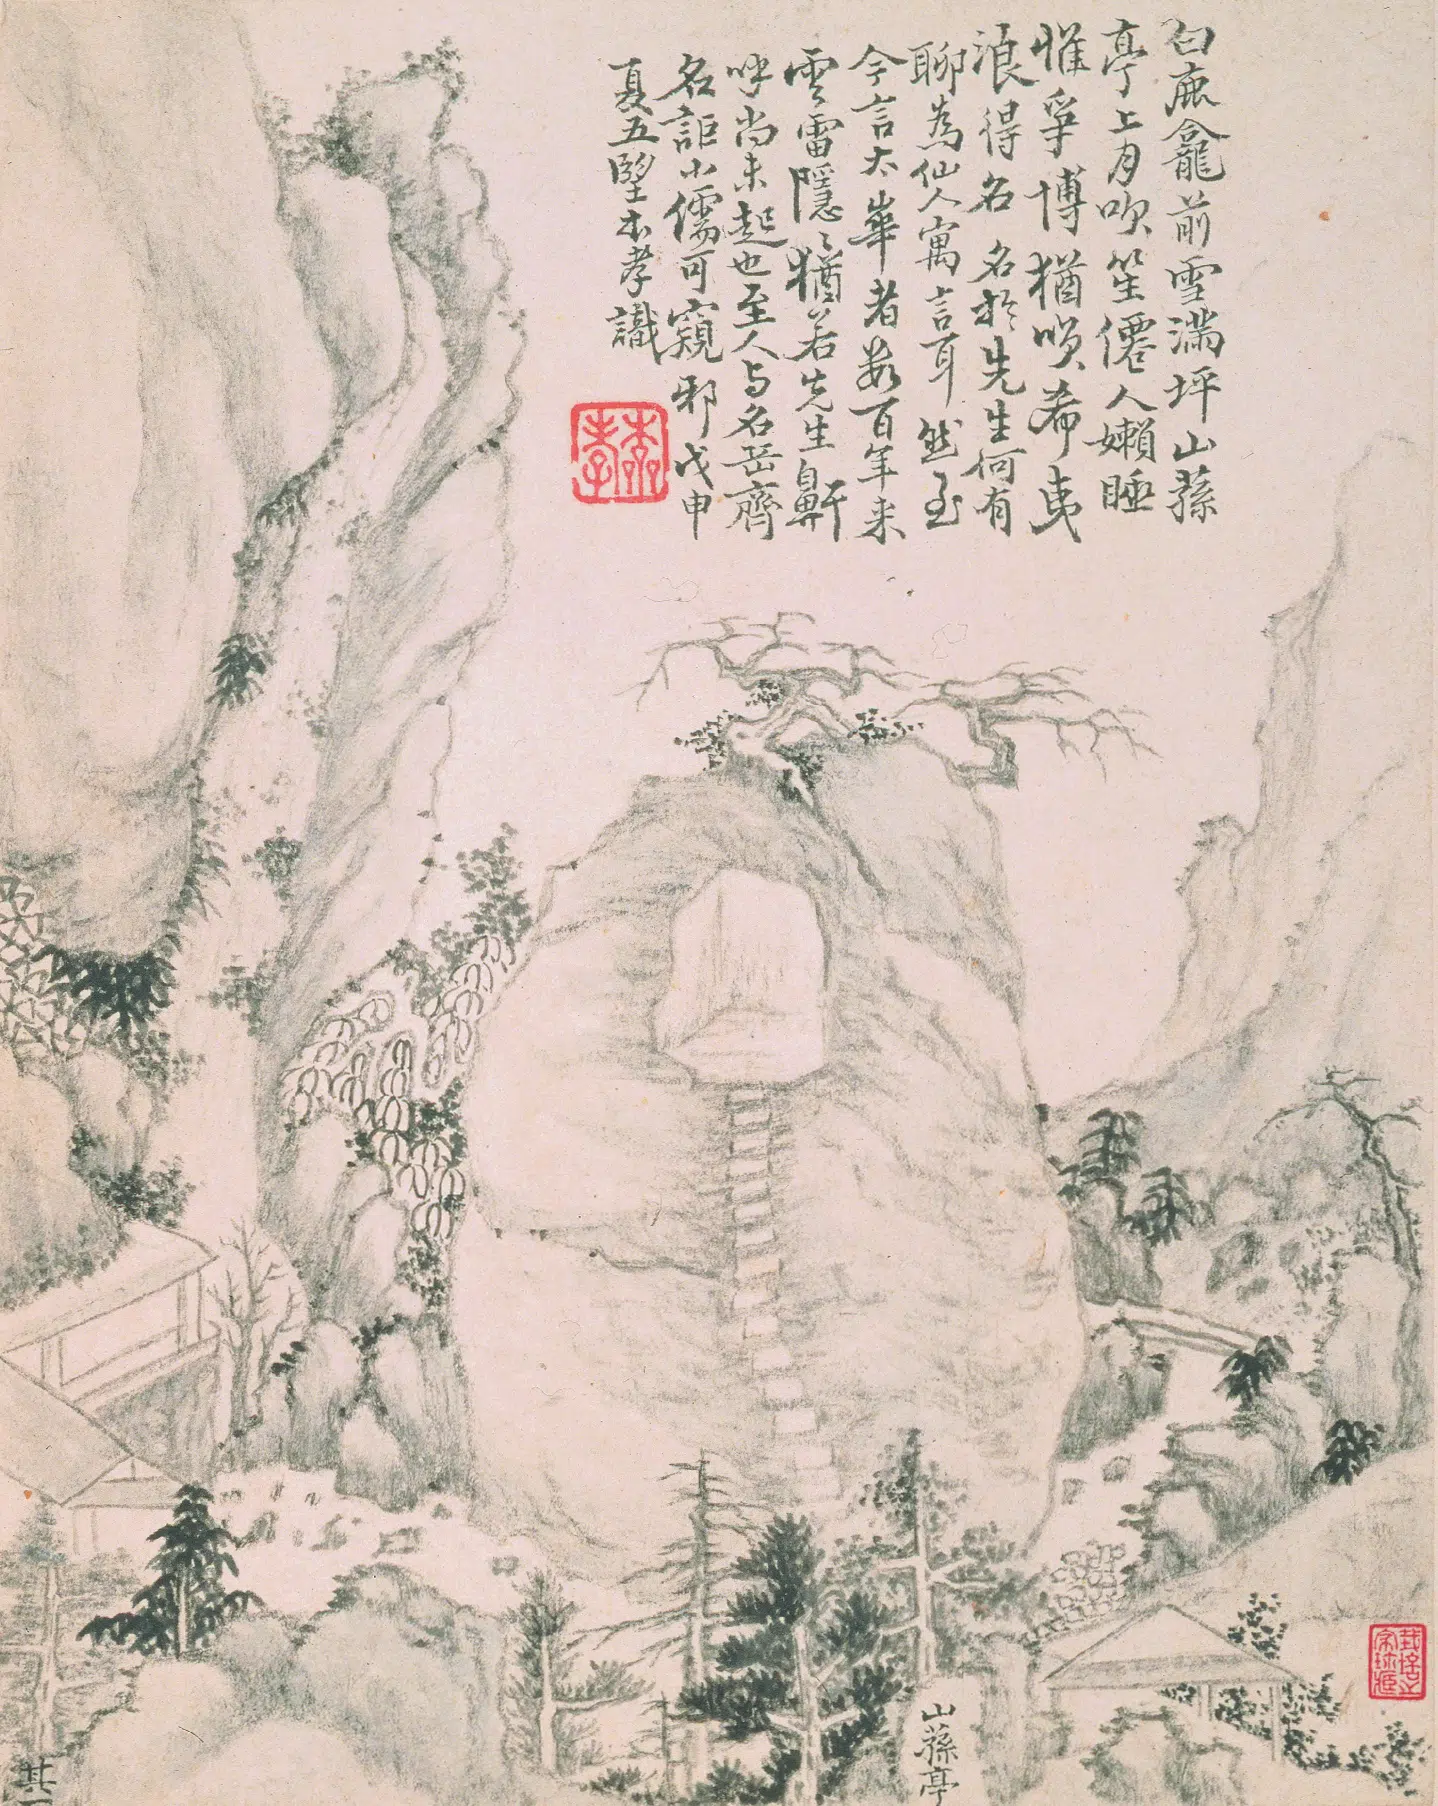 白鹿龕前雪滿坪山蓀
亭上月吹笙僊人嬾睡
惟爭博猶希夷
浪得名 名於先生何有
聊為仙人寓言耳然至
今言太華者數百年来
雲雷隱〻猶若先生鼻鼾
呼尚未起也至人与名岳齊
名詎小儒可窺邪戊申
夏五朢本孝識
本孝
山蓀亭
其